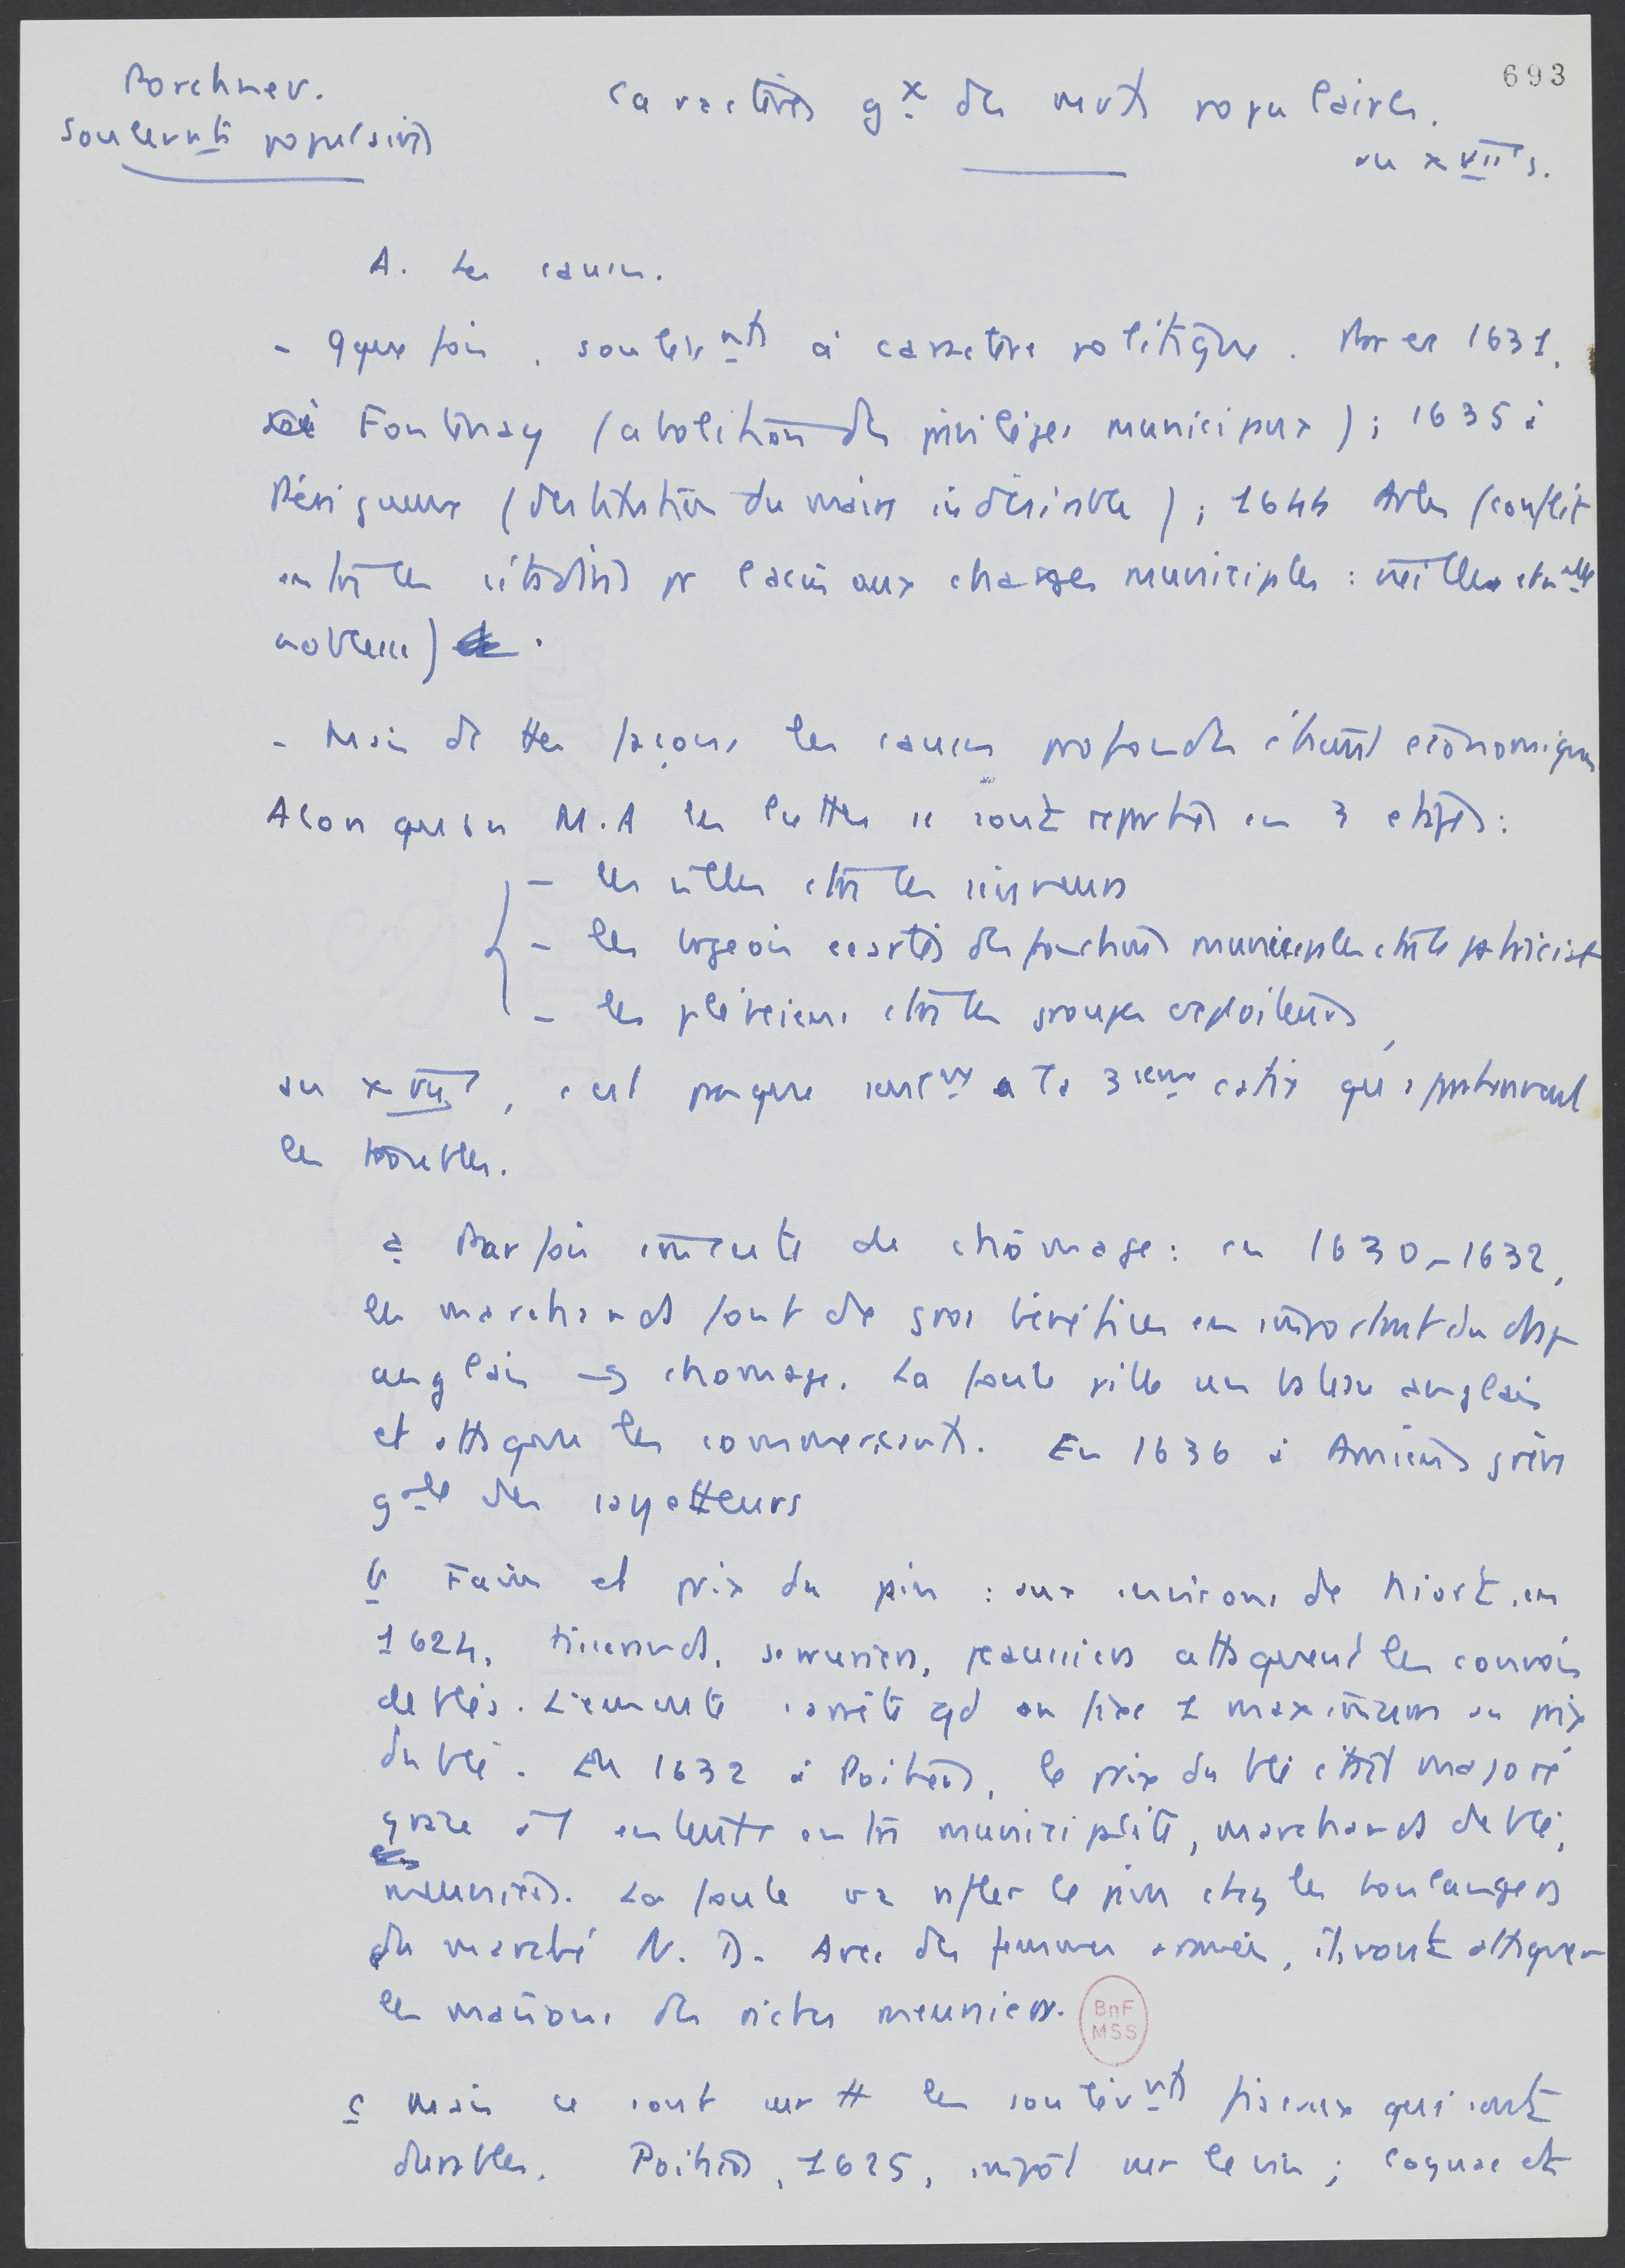 693
Porchnev.
Soulevmts populaires
Caractères gx des mvts populaires.
au XVIIe s.
A. Les causes.
- qque fois, soulevmts à caractère politique. Par ex 1631,
Fontenay (abolition des privilèges municipaux) ; 1635 à
Périgueux (destitution du maire indésirable) ; 1644 Arles (conflit
entre les citadins pr l'accès aux charges municipales : vieille et nelle
noblesse)
- Mais de ttes façons les causes profondes étaient économiques
Alors qu'au M.A les luttes se sont réparties en 3 étapes :
- les villes ctre les seigneurs
- les bgeois écartés des fonctions municipales ctre le patriciat
- les plébéiens ctre les groupes exploiteurs,
au XVIIe, c'est presque seult à la 3ieme catég qu'appartiennent
les troubles.
a Parfois émeute de chômage : en 1630-1632,
les marchands font de gros bénéfices en important du drap
anglais → chomage. La foule pille un bateau anglais
et attaque les commerçants. En 1636 à Amiens grève
gale des sayetteurs
b Faim et prix du pain : aux environs de Niort, en
1624, tisserands, serruriers, peaussiers attaquent les convois
de blés. L'émeute s'arrête qd on fixe 1 maximum au prix
du blé. En 1632 à Poitiers, le prix du blé était majoré
grace à 1 entente entre municipalité, marchands de blé,
meuniers. La foule va rafler le pain chez les boulangers
du marché N. D. Avec des femmes armées, ils vont attaquer
les maisons des riches meuniers.
BnF
MSS
c Mais ce sont surtt les soulèvmts fiscaux qui sont
durables. Poitiers, 1625, impôt sur le vin ; Cognac et